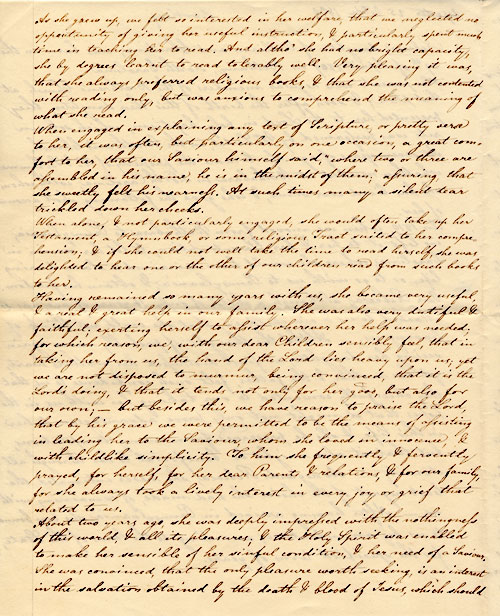 As she grew up, we felt so interested in her welfare, that we neglected no
opportunity of giving her useful instruction, & particularly spent much
time in teaching her to read. And altho' she had no bright capacity,
she by degrees learnt to read tolerably well. Very pleasing it was,
that she always preferred religious books, & that she was not contented
with reading only, but was anxious to comprehend the meaning of
what she read.
When engaged in explaining any text of Scripture, or pretty verse
to her, it was often, but particularly on one occasion, a great com
fort to her, that our Saviour himself said, "where two or three are
assembled in his name, he is in the midst of them; assuring that
she sweetly felt his nearness. At such times many a silent tear
trickled down her cheeks.
When alone, & not particularly engaged, she would often take up her
Testament, a Hymnbook, or some religious Tract suited to her compre
hension; & if she could not well take the time to read herself, she was
delighted to hear one or the other of our children read from such books
to her.
Having remained so many years with us, she became very useful,
& a real & great help in our family. She was also very dutiful &
faithful; exerting herself to assist wherever her help was needed;
for which reason, we, with our dear Children sensibly feel, that in
taking her from us, the hand of the Lord lies heavy upon us; yet
we are not disposed to murmur, being convinced, that it is the
Lord's doing, & that it tends, not only for her good, but also for
our own; — but besides this, we have reason to praise the Lord,
that by his grace we were permitted to be the means of assisting
in leading her to the Saviour, whom she loved in innocence, &
with childlike simplicity. To him she frequently & fervently
prayed, for herself, for her dear Parents & relations, & for our family,
for she always took a lively interest in every joy or grief that
related to us.
About two years ago, she was deeply impressed with the nothingness
of this world & all its pleasures, & the Holy Spirit was enabled
to make her sensible of her sinful condition, & her need of a Saviour.
She was convinced, that the only pleasure worth seeking, is an interest
in the salvation obtained by the death & blood of Jesus, which should